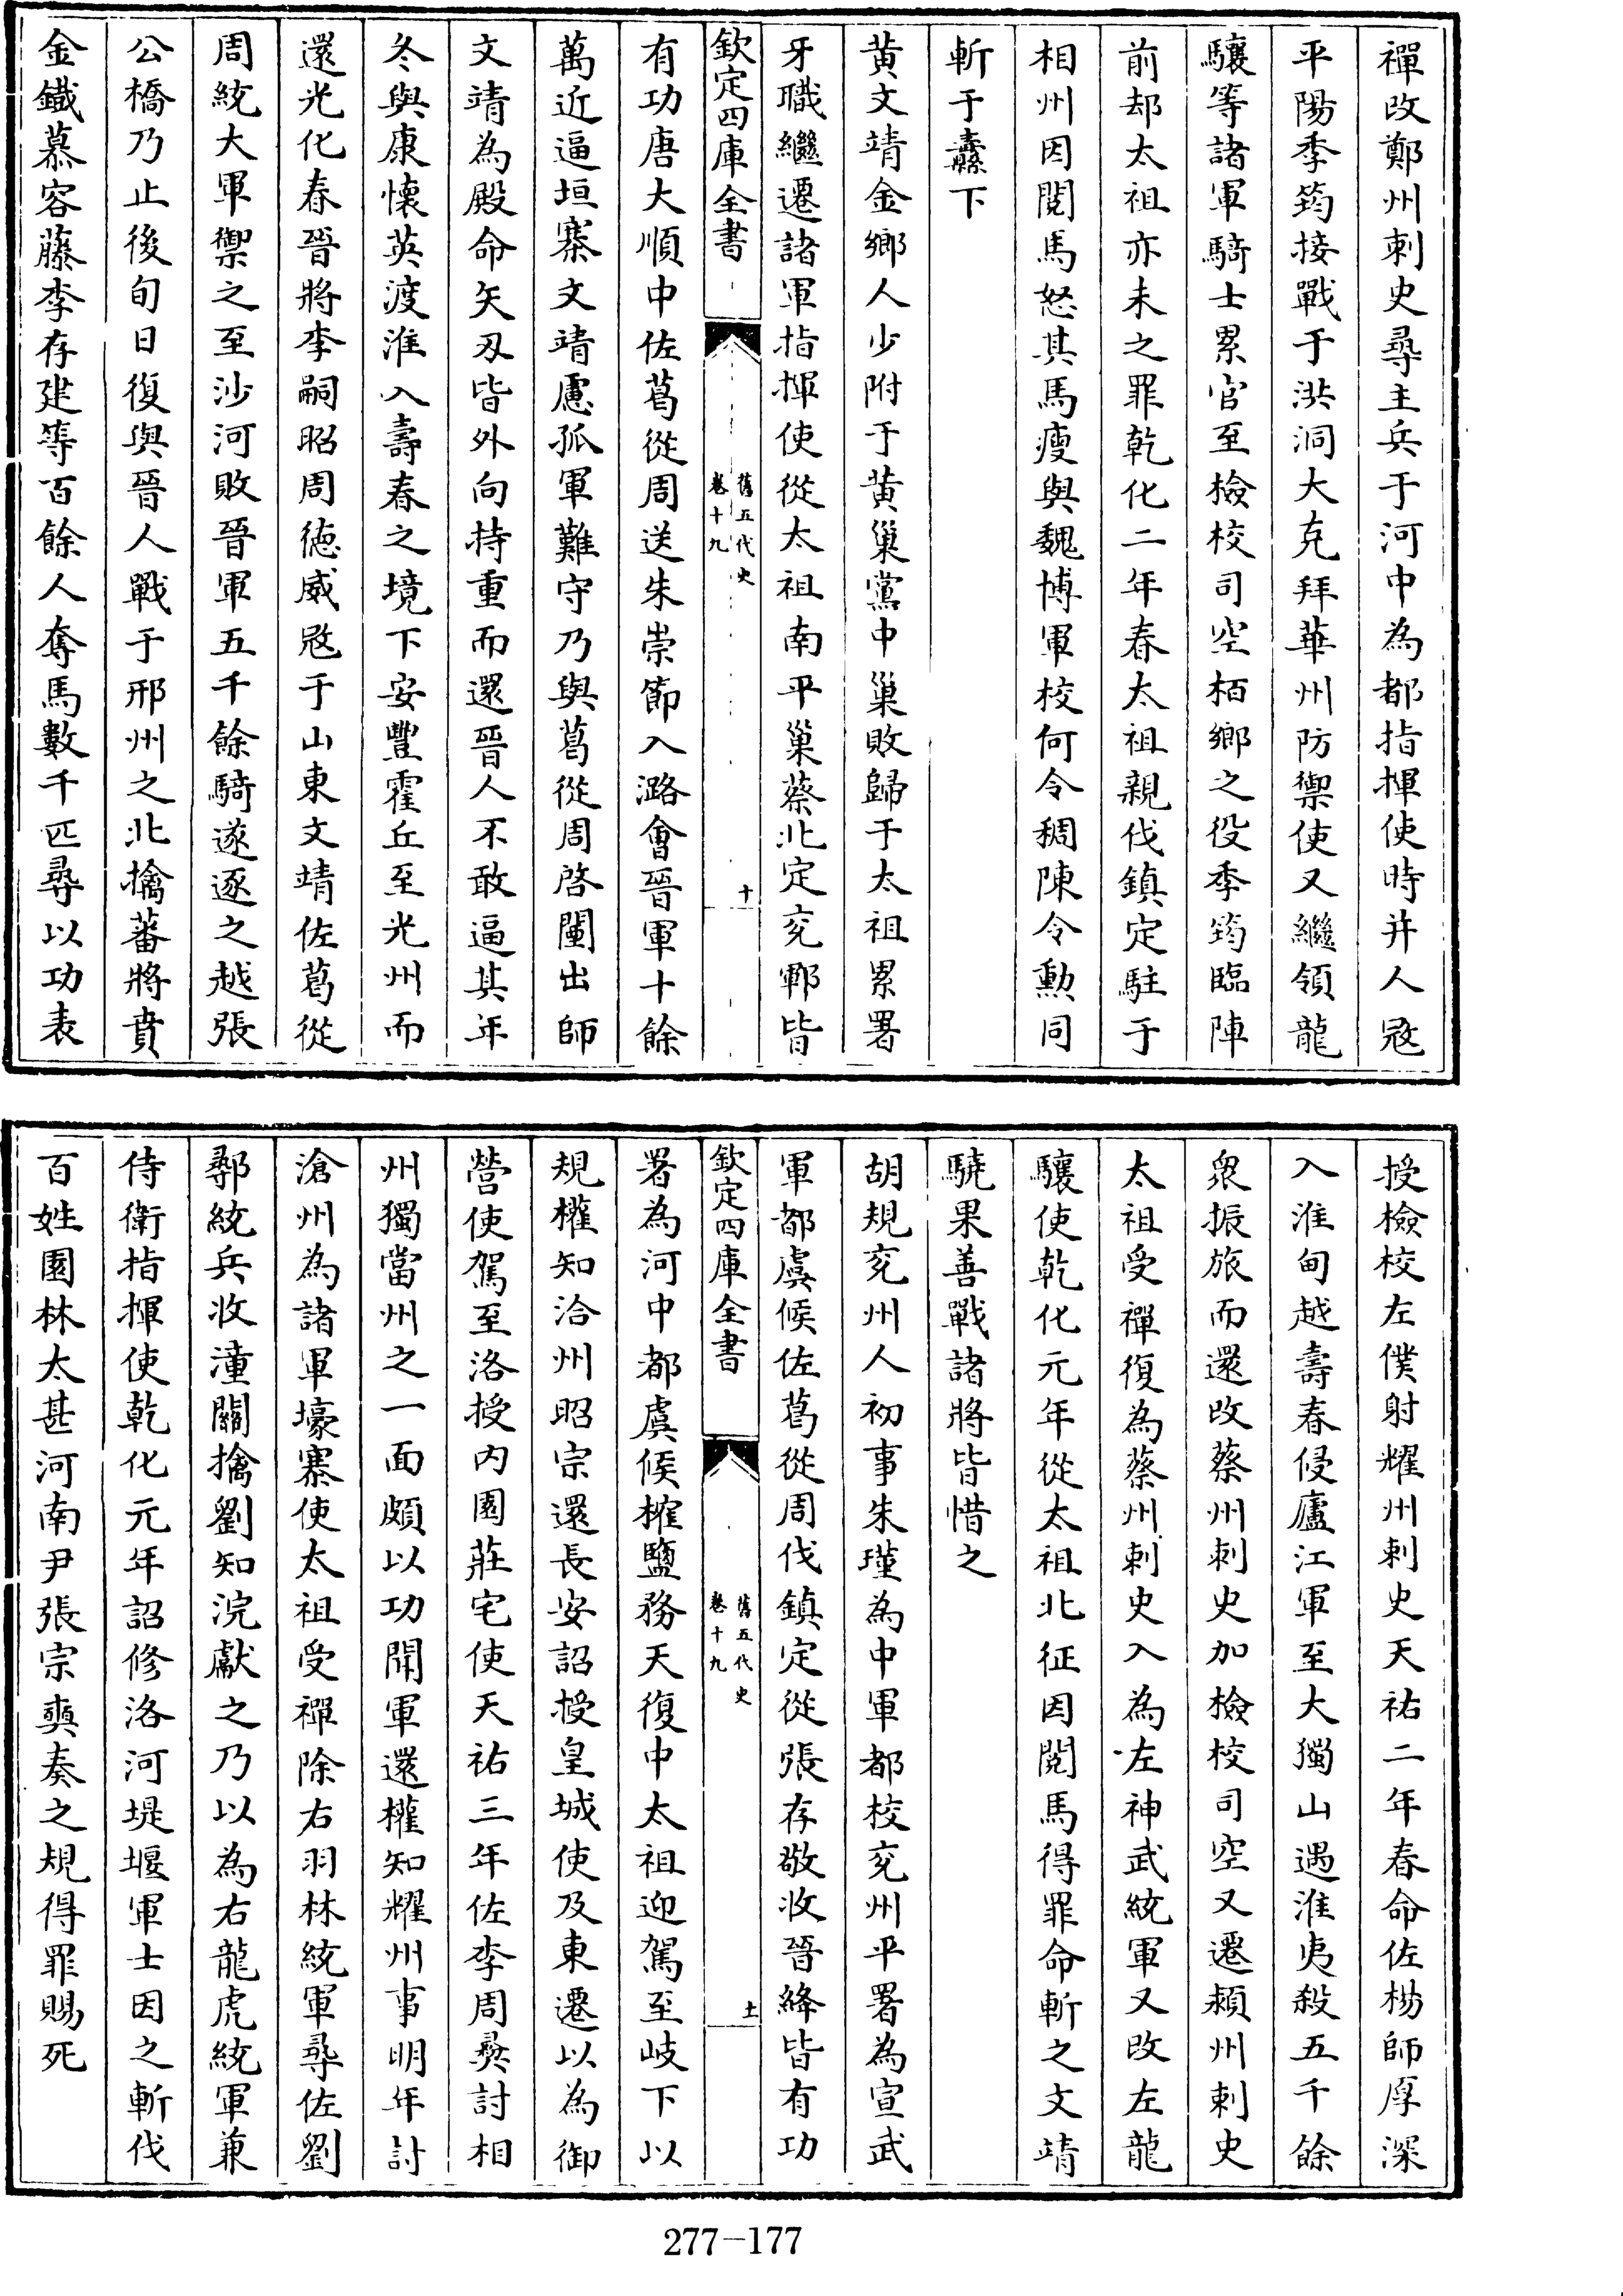 禪改鄭州刺史尋主兵于河中為都指揮使時并人寇
平陽季筠接戰于洪洞大克拜華州防禦使又繼領龍
驤等諸軍騎士累官至檢校司空栢鄉之役季筠臨陣
前却太祖亦未之罪乾化二年春太祖親伐鎮定駐于
相州因閱馬怒其馬瘦與魏博軍校何令稠陳令勳同
斬于纛下
黄文靖金鄉人少附于黄巢黨中巢敗歸于太祖累署
牙職繼遷諸軍指揮使從太祖南平巢蔡北定兖鄆皆
欽定四庫全書
舊五代史
卷十九
十
有功唐大順中佐葛從周送朱崇節入潞會晉軍十餘
萬近逼垣寨文靖慮孤軍難守乃與葛從周啓闉出師
文靖為殿命矢刃皆外向持重而還晉人不敢逼其年
冬與康懷英渡淮入壽春之境下安豐霍丘至光州而
還光化春晉將李嗣昭周德威寇于山東文靖佐葛從
周統大軍禦之至沙河敗晉軍五千餘騎遂逐之越張
公橋乃止後旬日復與晉人戰于邢州之北擒蕃將賁
金鐵慕容藤李存建等百餘人奪馬數千匹尋以功表
授檢校左僕射耀州刺史天祐二年春命佐楊師厚深
入淮甸越壽春侵廬江軍至大獨山遇淮夷殺五千餘
衆振旅而還改蔡州刺史加檢校司空又遷潁州刺史
太祖受禪復為蔡州刺史入為左神武統軍又改左龍
驤使乾化元年從太祖北征因閱馬得罪命斬之文靖
驍果善戰諸將皆惜之
胡規兖州人初事朱瑾為中軍都校兖州平署為宣武
軍都虞候佐葛從周伐鎮定從張存敬收晉絳皆有功
欽定四庫全書
舊五代史
卷十九
十一
署為河中都虞候榷鹽務天復中太祖迎駕至岐下以
規權知洽州昭宗還長安詔授皇城使及東遷以為御
營使駕至洛授内園莊宅使天祐三年佐李周彝討相
州獨當州之一面頗以功聞軍還權知耀州事明年討
滄州為諸軍壕寨使太祖受禪除右羽林統軍尋佐劉
鄩統兵收潼關擒劉知浣獻之乃以為右龍虎統軍兼
侍衛指揮使乾化元年詔修洛河堤堰軍士因之斬伐
百姓園林太甚河南尹張宗奭奏之規得罪賜死
277-177